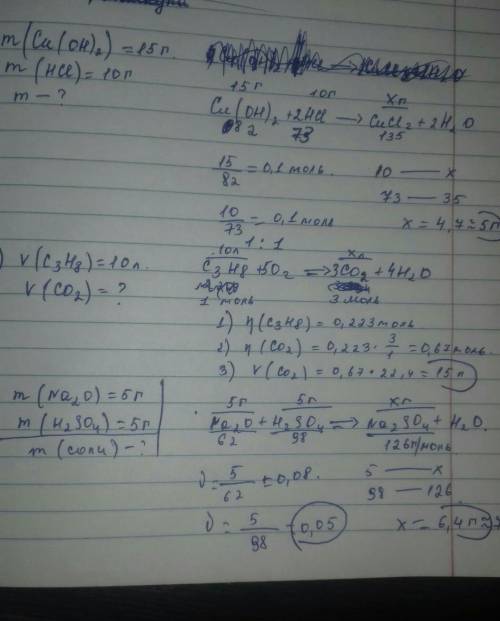 m(Cu(OH)₂) = 15г.
m(HCl) = 10г
m - ?
15г 10г хг
Cu(OH)₂ + 2HCl → CuCl₂ + 2H₂O
82 73 135
15/82 = 0,1 моль. 10 — х
73 — 35
10/73 = 0,1 моль х = 4,7 ≈ 5г
1 : 1
V(C₃H₈) = 10л.
V(CO₂) = ?
10л хл
C₃H₈ + 5O₂ ⇒ 3CO₂ + 4H₂O
1 моль 3 моль
1) η(C₃H₈) = 0,223 моль
2) η(CO₂) = 0,223 · 3/1 = 0,67 моль.
3) V(CO₂) = 0,67 · 22,4 = 15л
m(Na₂O) = 5г
m(H₂SO₄) = 5г
m(соли) - ?
5г 5г хг
Na₂O + H₂SO₄ ⇒ Na₂SO₄ + H₂O.
62 98 126г/моль
υ = 5/62 = 0,08. 5 — х
98 — 126
υ = 5/98 = 0,05 х = 6,4г ≈